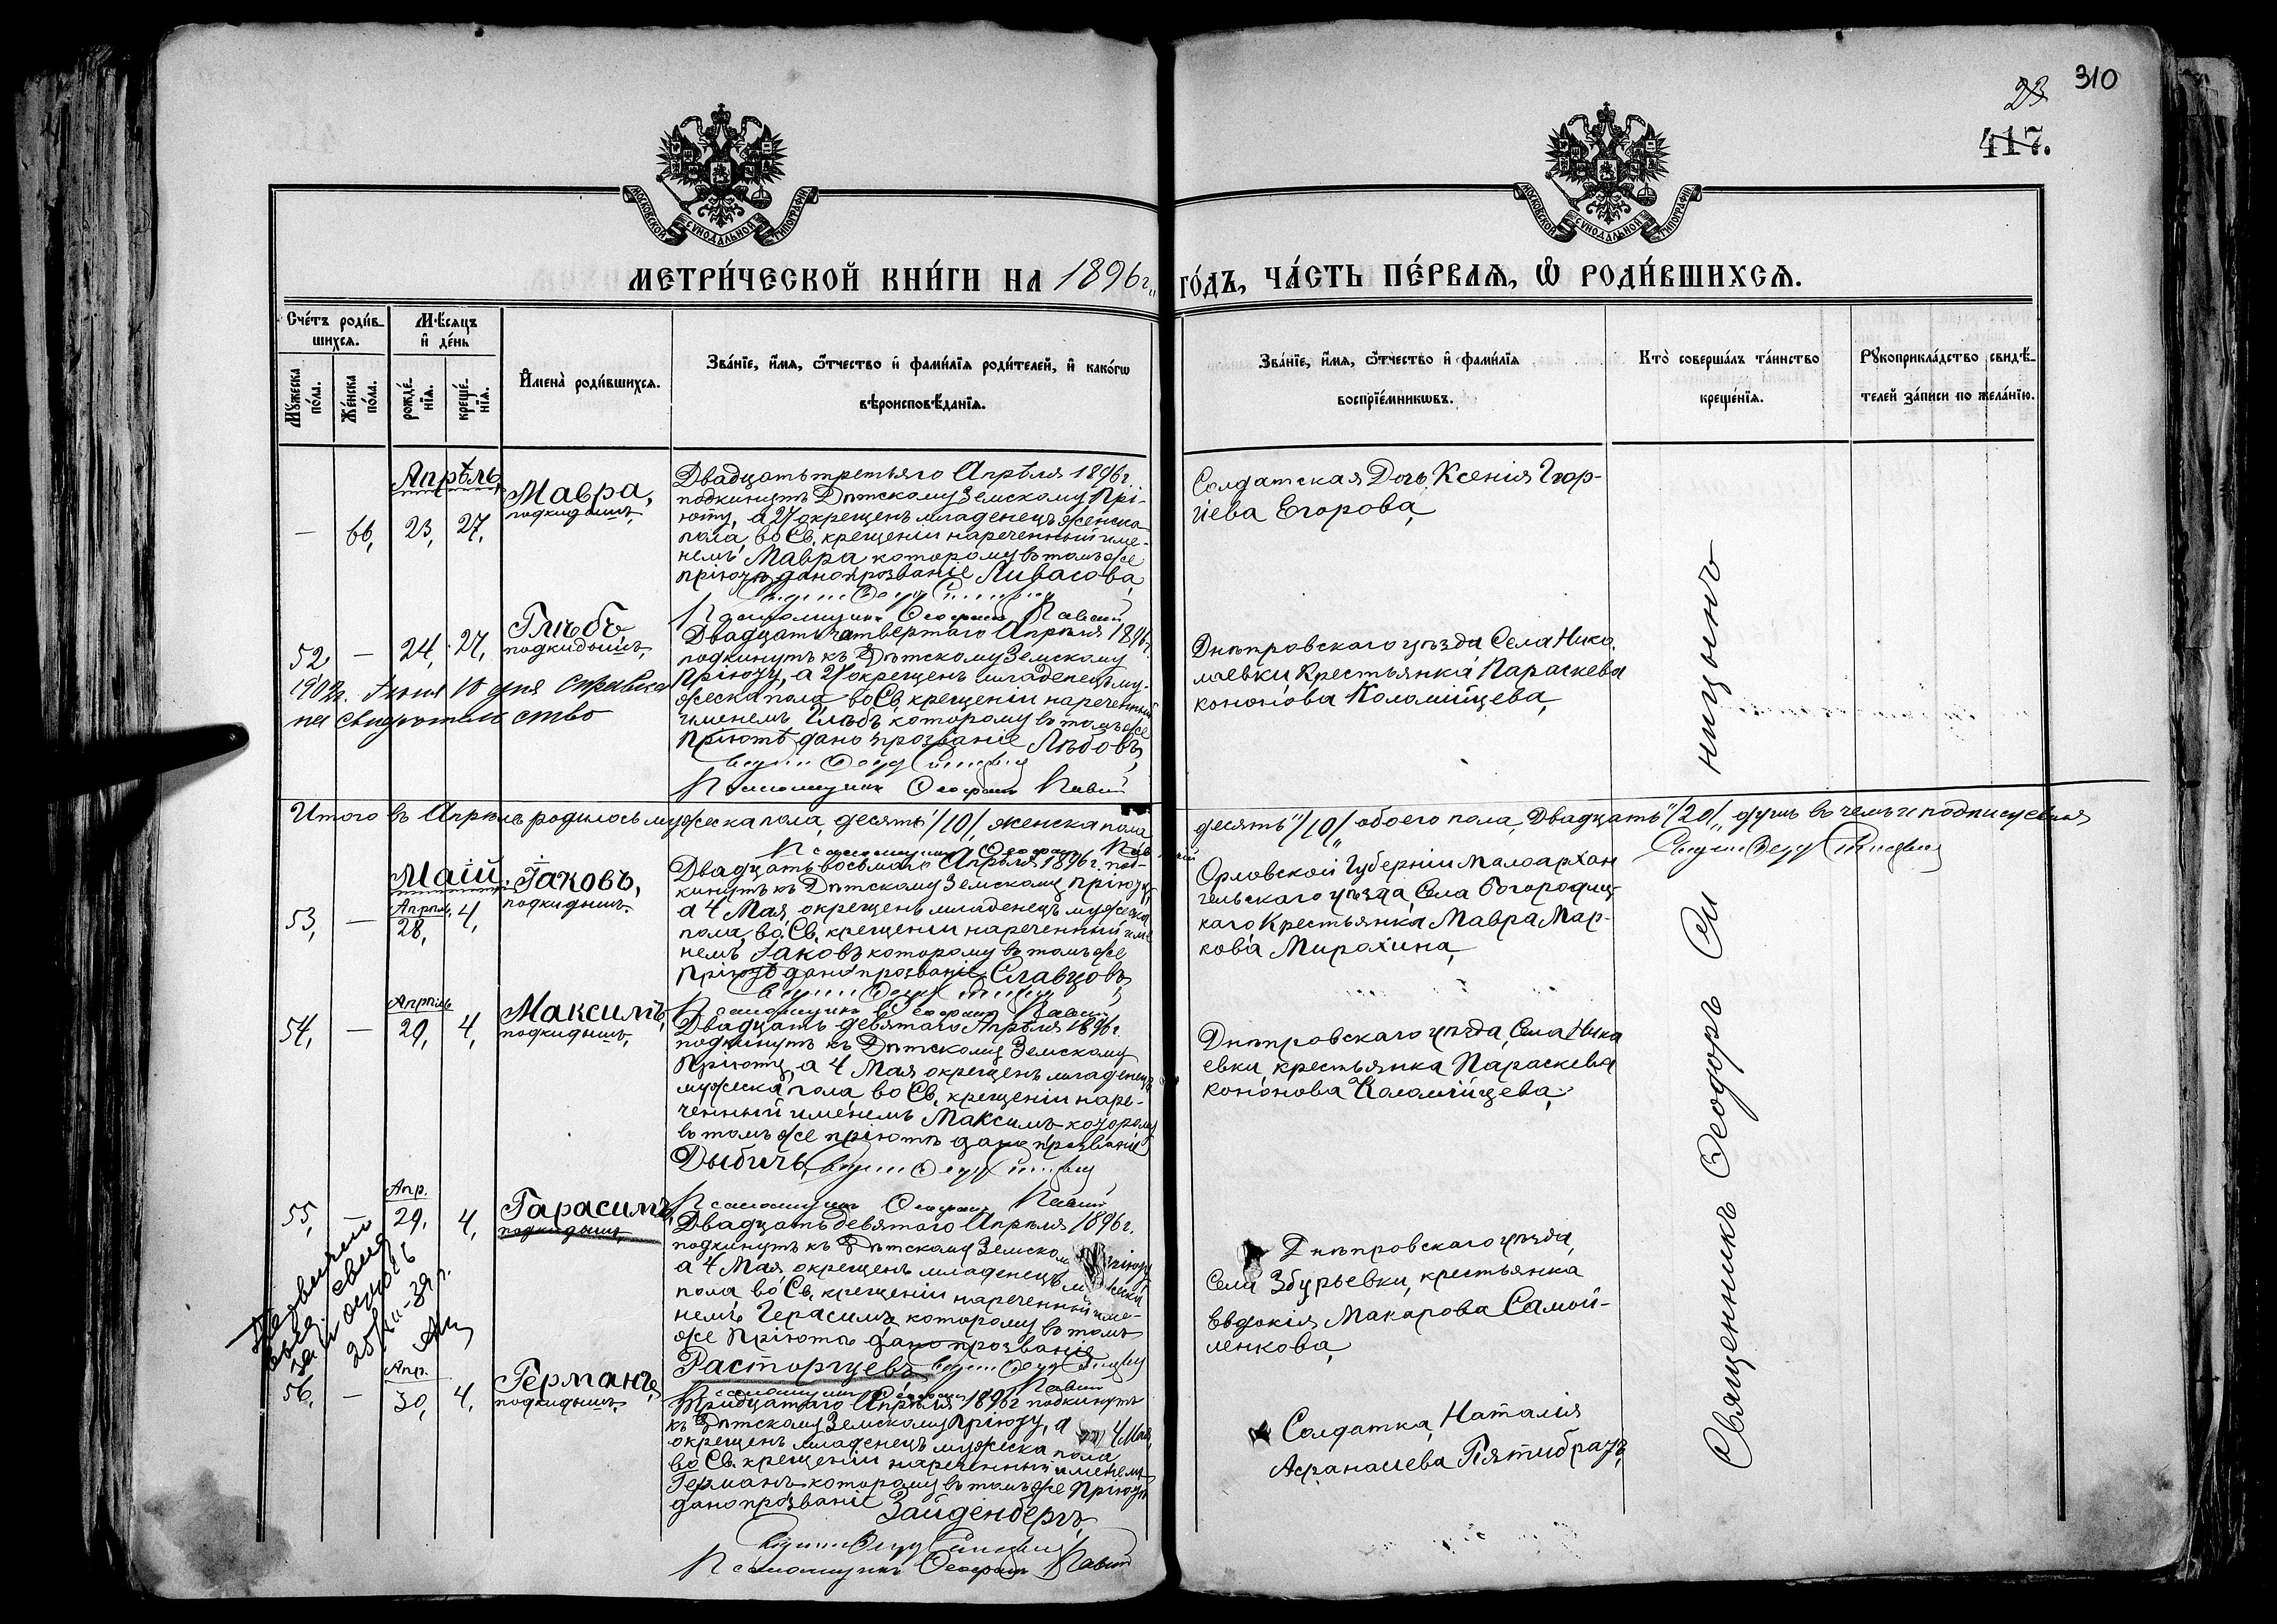 310
23
417.
МОСКОВСКОЙ СѴНОДАЛЬНОЙ ТИПОГРАФІИ
МОСКОВСКОЙ СѴНОДАЛЬНОЙ ТИПОГРАФІИ
МЕТРИ́ЧЕСКОЙ КНИ́ГИ НА 1896 г. ГО́ДЪ, ЧА́СТЬ ПЕ́РВАѦ, Ѿ РОДИ́ВШИХСѦ.
Сче́тъ роди́в-
шихсѧ.
Мꙋ́жеска по́ла.
Же́нска по́ла.
Мѣ́сѧцъ и де́нь
рожде́-нїѧ.
креще́-нїѧ.
Имена̀ роди́вшихсѧ.
Зва́нїе, и́мѧ, ѻ́тчество и фами́лїѧ роди́телей, и како́гѡ
вѣроисповѣ́данїѧ.
Зва́нїе, и́мѧ, ѻ́тчество и фами́лїѧ
воспрїе́мникѡвъ.
Кто̀ соверша́лъ та́инство
креще́нїѧ.
Рꙋкоприкла́дство свидѣ́-
телей за́писи по жела́нїю.
Апрѣль
— 66, 23, 27,
Мавра,
подкидышъ,
Двадцать третьяго Апрѣля 1896 г.
подкинутъ Дѣтскому Земскому Прі-
юту, а 27 окрещенъ младенецъ женска
пола, во Св. крещеніи нареченный име-
немъ Мавра которому въ томъ же
пріютѣ дано прозваніе Ливасова,
Псаломщикъ
Солдатская Дочь Ксенія Геор-
гіева Егорова,
52, — 24, 27,
Глѣбъ,
подкидышъ,
Двадцать четвертаго Апрѣля 1896 г.
подкинутъ къ Дѣтскому Земскому
Пріюту, а 27 окрещенъ младенецъ му-
жеска пола во Св. крещеніи нареченный
именемъ Глѣбъ которому въ томъ же
Пріютѣ дано прозваніе Лѣбовъ,
Псаломщикъ
Днѣпровскаго уѣзда Села Нико-
лаевки Крестьянка Параскева
Кононова Коломійцева,
Іюня 10 дня Справка
на свидѣтельство
Итого въ Апрѣлѣ родилось мужеска пола, десять /10/, женска пола
десять /10/, обоего пола, Двадцать /20/, душъ въ чемъ и подписуемся
Псаломщикъ
Маій,
53, — Апрѣль 28, 4,
Іаковъ,
подкидышъ,
Двадцать восьмаго Апрѣля 1896 г. под-
кинутъ къ Дѣтскому Земскому Пріюту,
а 4 Мая, окрещенъ младенецъ мужеска
пола, во Св. крещеніи нареченный име-
немъ Іаковъ которому въ томъ же
Пріютѣ дано прозваніе Славцовъ,
Псаломщикъ
Орловской Губерніи Малоархан-
гельскаго уѣзда, Села Богородиц-
каго Крестьянка Мавра Мар-
кова Мирохина,
54, — Апрѣль 29, 4,
Максимъ,
подкидышъ,
Двадцать девятаго Апрѣля 1896 г.
подкинутъ къ Дѣтскому Земскому
Пріюту, а 4 Мая окрещенъ младенецъ
мужеска пола, во Св. крещеніи наре-
ченный именемъ Максимъ которому
въ томъ же пріютѣ дано прозваніе
Дыбичъ,
Псаломщикъ
Днѣпровскаго уѣзда, Села Никола
евки, крестьянка Параскева
Кононова Коломійцева,
55, — Апр. 29, 4,
Гарасимъ,
подкидышъ,
Двадцать девятаго Апрѣля 1896 г.
подкинутъ къ Дѣтскому Земском
а 4 Мая, окрещенъ младенецъ
пола во Св. крещеніи нареченный име-
немъ Герасимъ которому въ томъ
же Пріютѣ дано прозваніе
Расторгуевъ,
Псаломщикъ
Днѣпровскаго уѣзда,
Села Збурьевки, крестьянка
Евдокія Макарова Самой-
ленкова,
56, — Апр. 30, 4,
Германъ,
подкидышъ,
Тридцатаго Апрѣля 1896 г. подкинутъ
къ Дѣтскому Земскому Пріюту, а 4 Мая,
окрещенъ младенецъ мужеска пола
во Св. крещеніи нареченный именемъ
Германъ которому въ томъ же Пріютѣ
дано прозваніе Зайденбергъ,
Псаломщикъ
Солдатка, Наталія
Афанасіева Пятибратъ,
Священникъ Ѳеодоръ